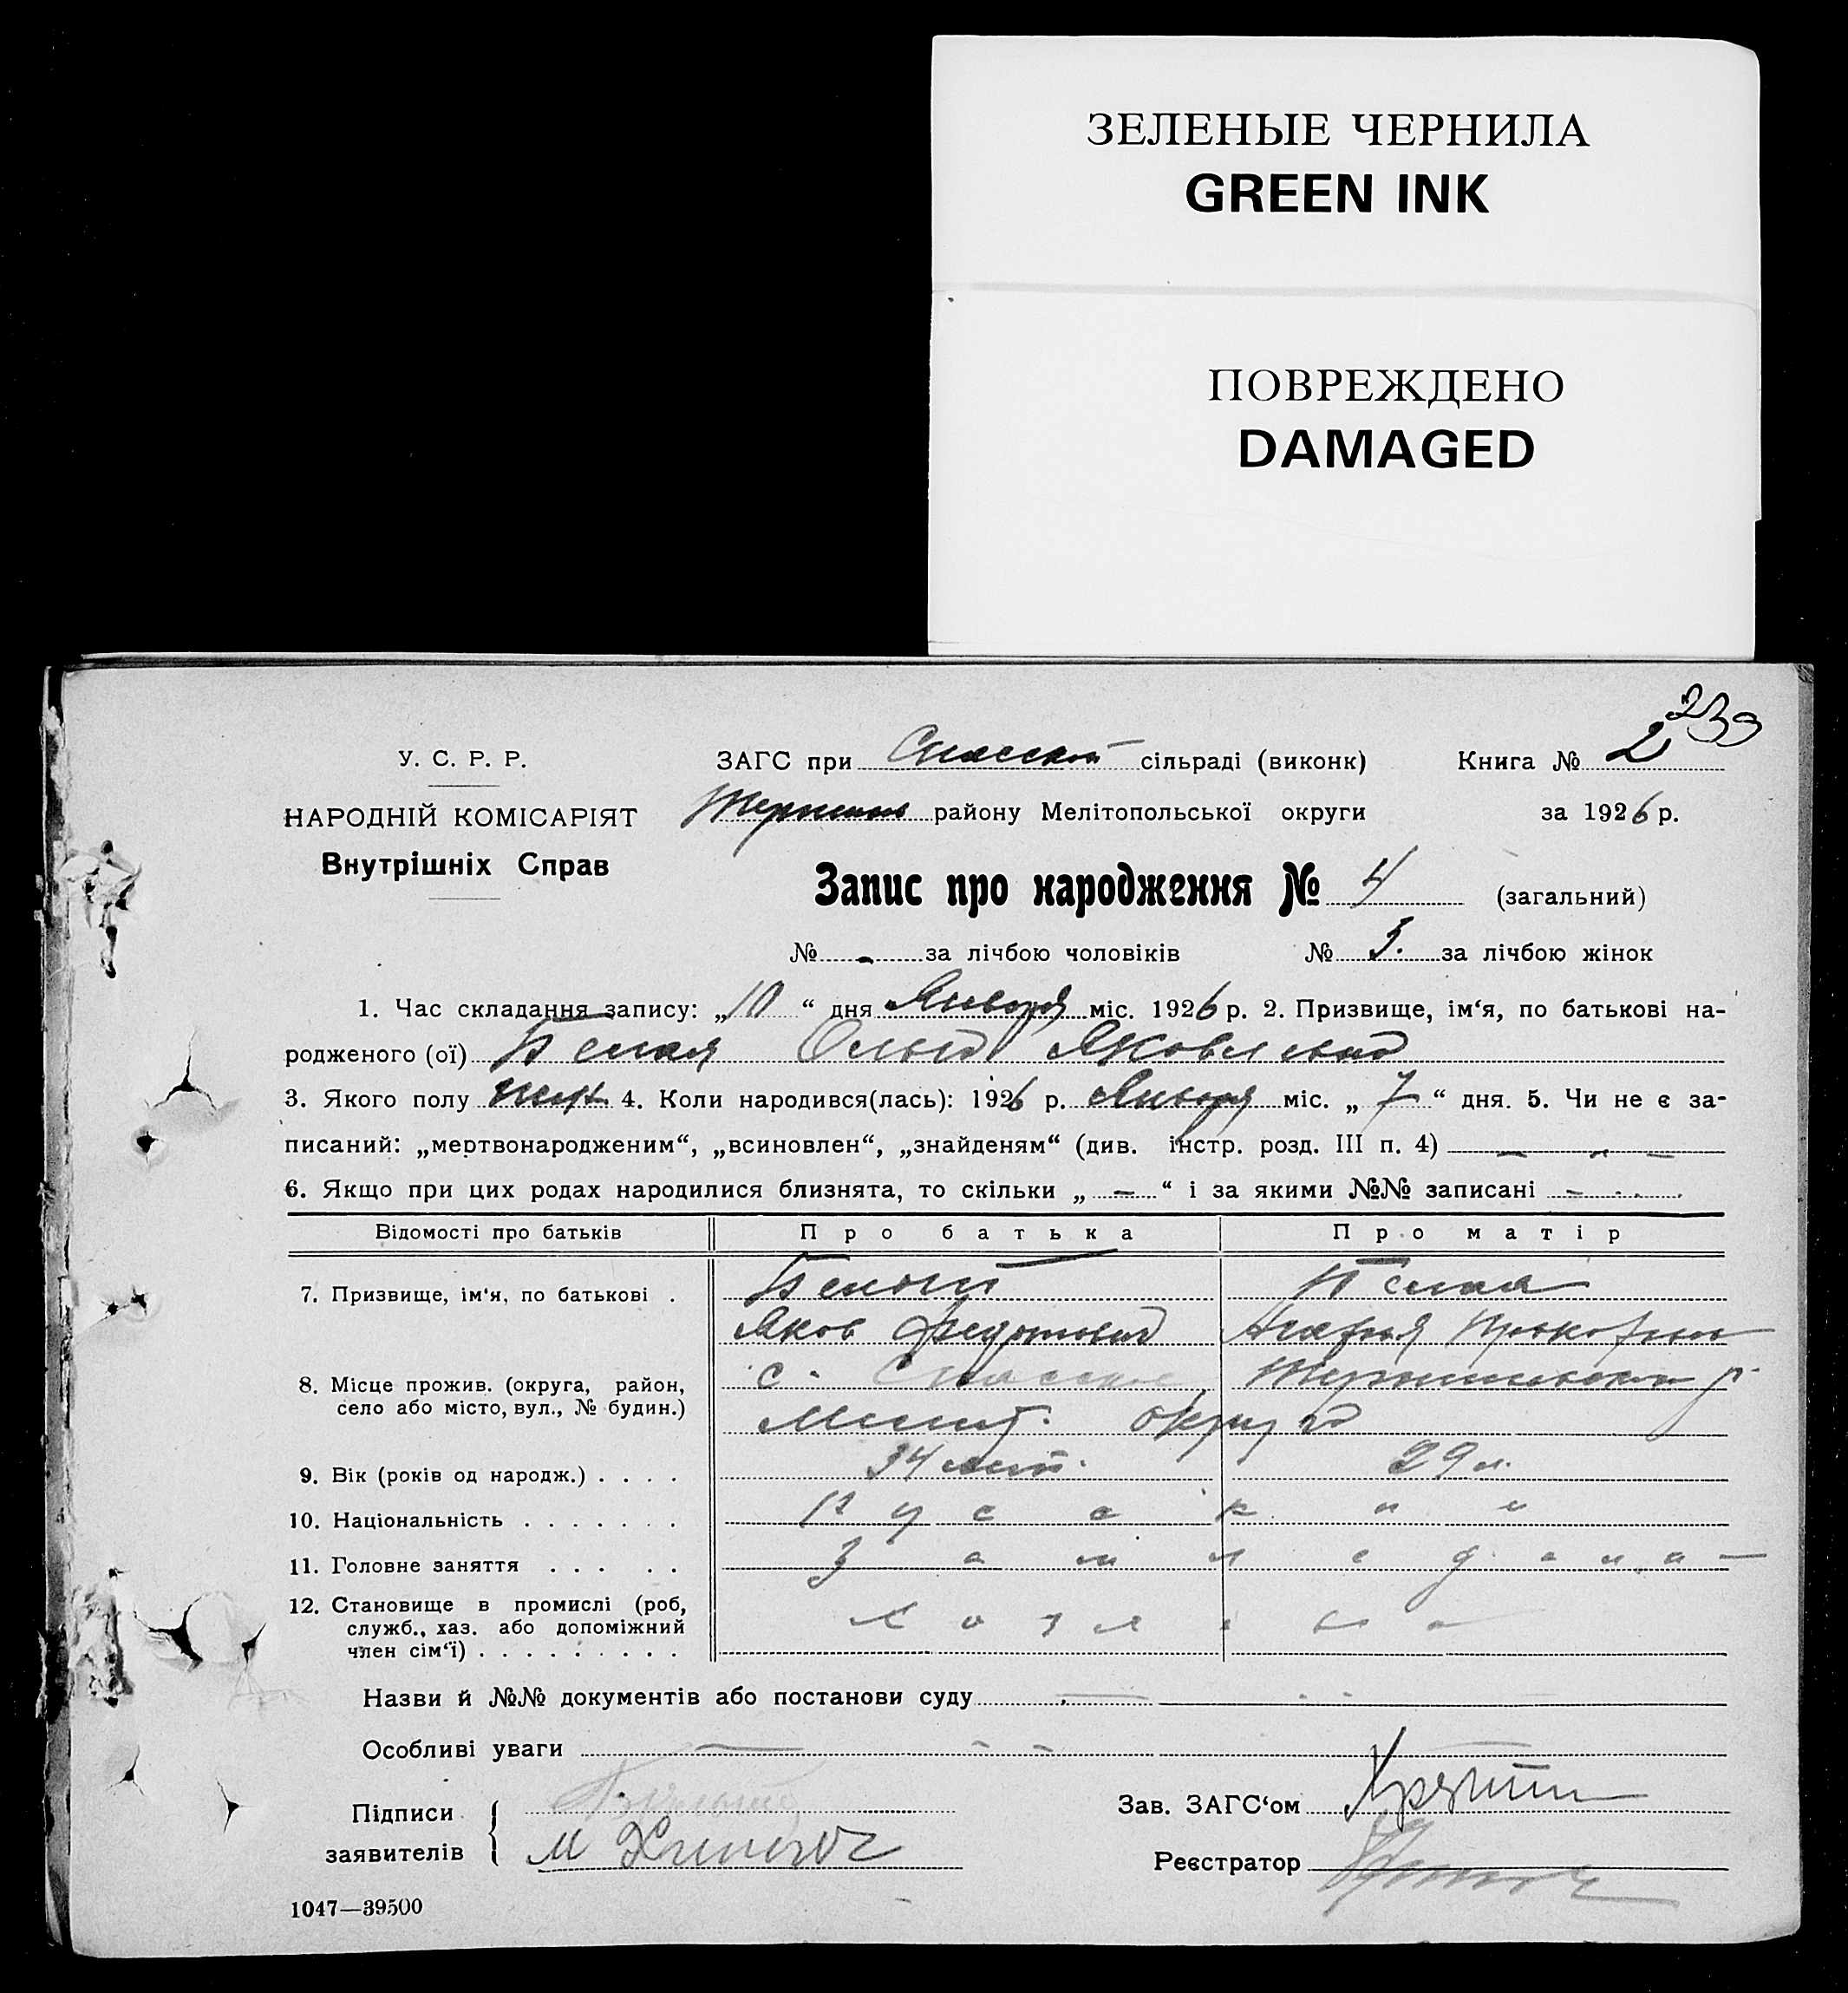 ЗЕЛЕНЫЕ ЧЕРНИЛА
GREEN INK
ПОВРЕЖДЕНО
DAMAGED
239
У. С. Р. Р.
ЗАГС при Спасской сільраді (виконк) Книга № 2
НАРОДНІЙ КОМІСАРІЯТ
району Мелітопольської округи за 1926 р.
Внутрішніх Справ
Запис про народження № 4 (загальний)
№ - за лічбою чоловіків № 3. за лічбою жінок
1. Час складання запису: „10“ дня Января міс. 1926 р. 2. Призвище, ім‘я, по батькові на-
родженого (ої) Белая Ольга Яковлевна
3. Якого полу 4. Коли народився(лась): 1926 р. Января міс. „7“ дня. 5. Чи не є за-
писаний: „мертвонародженим“, „всиновлен“, „знайденям“ (див. інстр. розд. III п. 4) — - —
6. Якщо при цих родах народилися близнята, то скільки „ — “ і за якими №№ записані -
Відомості про батьків Про батька Про матір
7. Призвище, ім‘я, по батькові . Белый Белая
Яков Федотович Агафья
8. Місце прожив. (округа, район, с. Спасское
село або місто, вул., № будин.) Мелит. округа
9. Вік (років од народж.) . . . . 34 лет. 29 л.
10. Національність . . . . . . .
11. Головне заняття . . . . .
12. Становище в промислі (роб,
служб., хаз. або допоміжний
член сім‘ї) . . . . . . . . .
Назви й №№ документів або постанови суду
Особливі уваги
Підписи Зав. ЗАГС‘ом
заявителів М Реєстратор
1047—39500